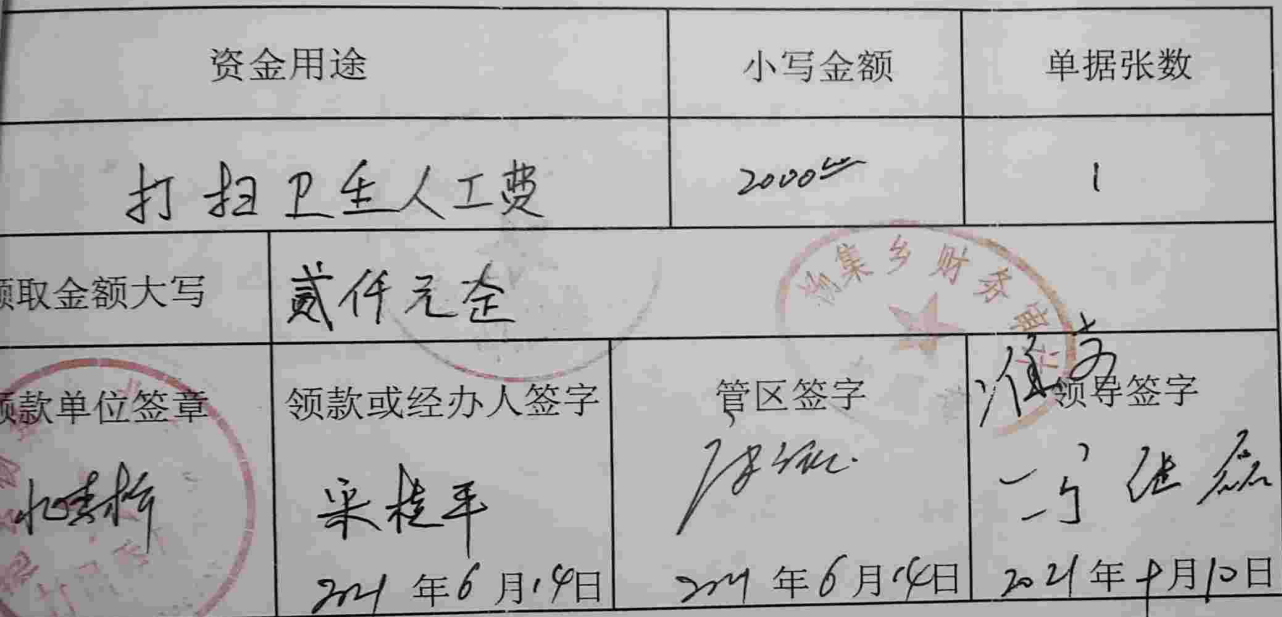 资金用途 小写金额 单据张数
打扫卫生人工费 2000 1
领取金额大写 贰仟元整
集乡财务审
准支
领款单位签章 领款或经办人签字 管区签字 领导签字
桂平
2021年6月14日 2021年6月14日 2021年 月10日